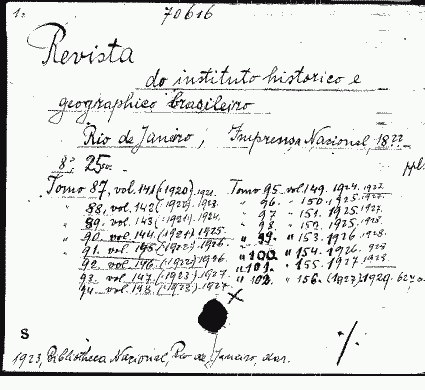 1. 70616
Revista
do instituto historico e
geographico brasileiro
Rio de Janeiro, Imprensa Nacional, 18
8° 25 cm.
ppl.
Tomo 87, vol. 141 (1920) 1921. Tomo 95 vol. 149. 1924. 1927.
" 88, vol. 142 (1920) 1923. " 96. " 150. 1925. 1927.
" 89. vol. 143 (1921) 1924. " 97 " 151. 1925. 1927.
" 90. vol. 144. (1921) 1925. " 98. " 152. 1925. 1928.
" 91. vol. 145. 1926. " 99. " 153. 1926. 1928.
92. vol. 146. (1922) 1926. " 100. " 154. 1926. 1928
93. vol. 147. 1927. " 101. " 155. 1927. 1928
94. vol. 148. 1927. " 102. " 156. (1927) 1929.
X
S
1923, Bibliotheca Nacional, Rio de Janeiro, dar.